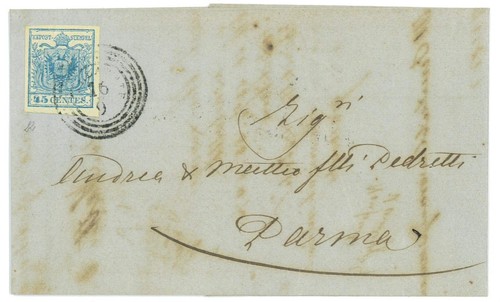 KKPOST-STEMPEL
45 CENTES.
16
9
Sig.ri
Andrea & Matteo flli Pedretti
Parma